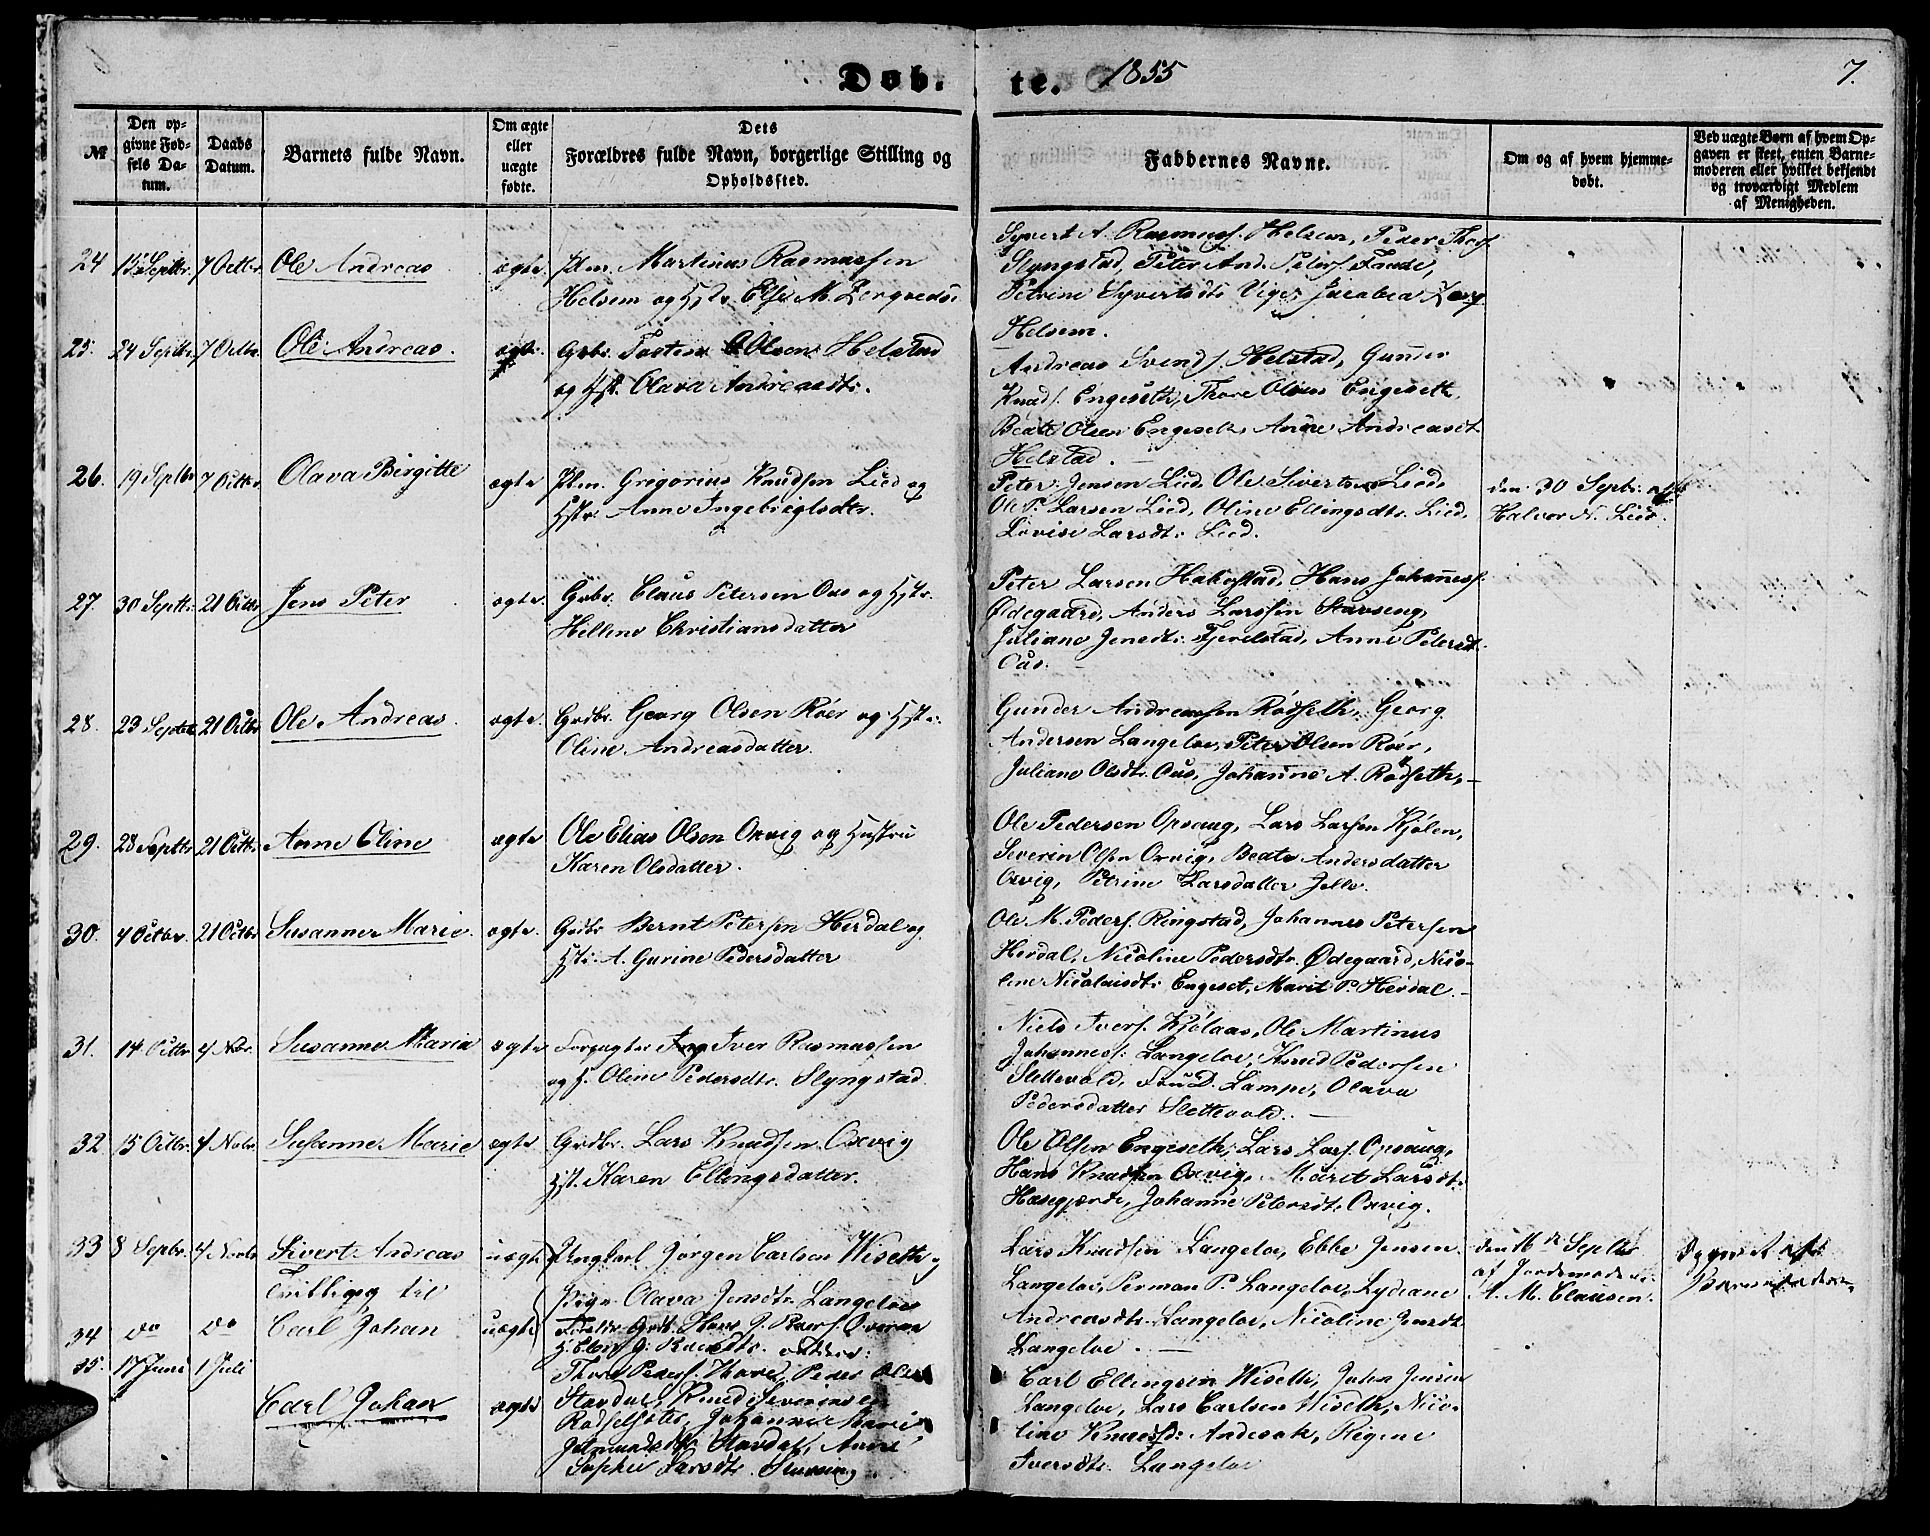 Døb-
te. 1855
7.
№
Den op-
givne Fød-
sels Da-
tum.
Daabs
Datum.
Barnets fulde Navn.
Om ægte
eller
uægte
fødte.
Dets
Forældres fulde Navn, borgerlige Stilling og
Opholdssted.
Faddernes Navne.
Om og af hvem hjemme-
døbt.
Ved uægte Børn af hvem Op-
gaven er skeet, enten Barne-
moderen eller hvilket bekjendt
og troværdigt Medlem
af Menigheden.
24 Septbr. 7 Octbr. Ole Andreas ægte Martinus Rasmussen
Helsem og Hstr. Else M.
Syvert A. Rasmuss. Helsem, Peder
Slyngstad, Peter And. Peters.
Petrine Syvertsdtr.
Helsem.
25. 24 Septbr. 7 Octbr. Ole Andreas. ægte Gbr. Tosten Olsen Helstad
og Hst. Olava Andreasdtr.
Andreas Svends. Helstad, Gunder
Knuds. Engeseth, Thore Olsen Engeseth
Beate Olsen Engeseth, Anne Andreasdt.
Helstad.
26. 19 Septbr 7 Octbr. Olava Birgitte ægte Plm. Gregorius Knudsen Lied og
Hstr. Anne Ingebrigtsdtr.
Peter Jensen Lied, Ole Sivertsen Lied,
Ole P. Larsen Lied, Oline Ellingsdtr. Lied,
Lovise Larsdtr. Lied.
den 30 Septbr. af
Halvor N. Lied.
27. 30 Septbr. 21 Octbr Jens Peter ægte. Grbr. Claus Petersen Ous og Hstr.
Helline Christiansdatter
Peter Larsen Hakestad, Hans Johanness.
Ødegaard, Anders Larssen Stavseng,
Juliane Jensdtr. Fjerelstad, Anne Petersdt.
Ous.
28. 23 Septbr 21 Octbr Ole Andreas. ægte. Grdbr. Georg Olsen Röer og Hstr.
Oline Andreasdatter.
Gunder Andreassen Rödseth, Georg
Andersen Langeloe, Peter Olsen Röer,
Juliane Olsdtr. Ous, Johanne A. Rödseth.
29. 28 Septbr 21 Octbr Anne Eline ægte Ole Elias Olsen Oxvig og Hustru
Karen Olsdatter.
Ole Pedersen Opsaug, Lars Larsen Kjölen,
Severin Olsen Oxvig, Beate Andersdatter
Oxvig, Petrine Larsdatter
30. 4 Octbr. 21 Octbr Susanne Marie. ægte. Grdbr. Bernt Petersen Herdal og
Hstr. A. Gurine Pedersdatter
Ole M. Peders. Ringstad, Johannes Petersen
Herdal, Nicoline Pedersdtr. Ødegaard, Nico-
line Nicolaisdtr. Engeset, Marit P. Herdal.
31. 14 Octbr 4 Nbr. Susanne Maria ægte Forpagter Iver Rasmussen
og H. Oline Pedersdtr. Slyngstad.
Niels Ivers. Kjölaas, Ole Martinus
Johanness. Langeloe, Knud Pedersen
Slettevold, Fru D. Lampe, Olava
Pedersdatter Slettevold.
32 15 Octbr. 4 Novbr. Susanne Marie ægte Grdbr. Lars Knudsen Oxvig
Hst. Karen Ellingsdatter.
Ole Olsen Engeseth, Lars Lars. Opsaug,
Hans Knudsen Oxvig, Marit Larsdtr.
Hasegjerde, Johanne Petersdt. Oxvig.
33 8 Septbr. 4 Novbr Sivert Andreas uægte Ungkarl Jørgen Carlsen Wiseth og
Tvilling til Pige Olava Jensdtr. Langeloe
Lars Knudsen Langeloe, Ebbe Jensen
Langeloe, Perman P. Langeloe, Lydiane
Andreasdtr. Langeloe, Nicoline Jensdt.
Langeloe.
den 16de Septbr
af Jordemoder
A. M. Clausen.
Opgivet af
Barnemoderen
34 do do Carl Johan uægte
Carl Ellingsen Wiseth, John Jensen
Langeloe, Lars Carlsen Wiseth, Nico-
line Knudsd. Andesak, Regine
Iversdtr. Langeloe
35. 17 Juni 1 Juli Carl Johan ægte